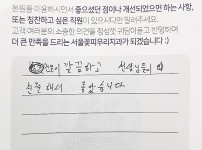 본원을 이용하시면서 좋으셨던 점이나 개선되었으면 하는 사항,
또는 칭찬하고 싶은 직원이 있으시다면 일러주세요.
고객 여러분의 소중한 의견을 정성껏 귀담아듣고 반영하여
더 큰 만족을 드리는 서울꽃피우리치과가 되겠습니다 :)
깔끔하고 선생님들이
친절해서 좋았습니다